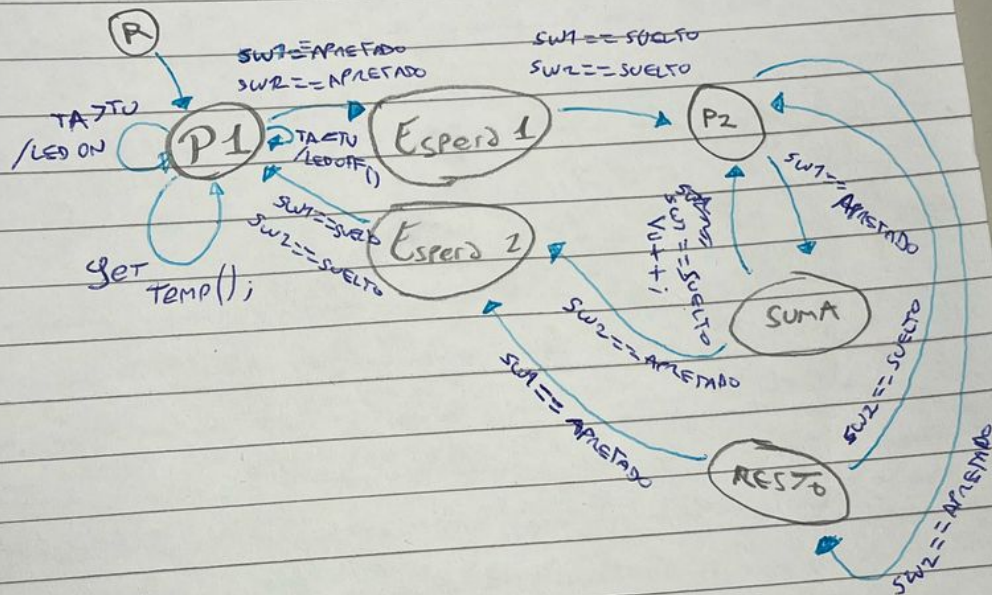 R
SW1==APRETADO
SW2==APRETADO
SW1==SUELTO
SW2==SUELTO
TA>TU
/LED ON
P1
TA<TU
/LEDOFF()
Espera 1
P2
SW1==APRETADO
SW1==SUELTO
SW2==SUELTO
Espera 2
SW1==SUELTO
VU++;
get
Temp();
SUMA
SW2==APRETADO
SW2==SUELTO
SW1==APRETADO
RESTO
SW2==APRETADO